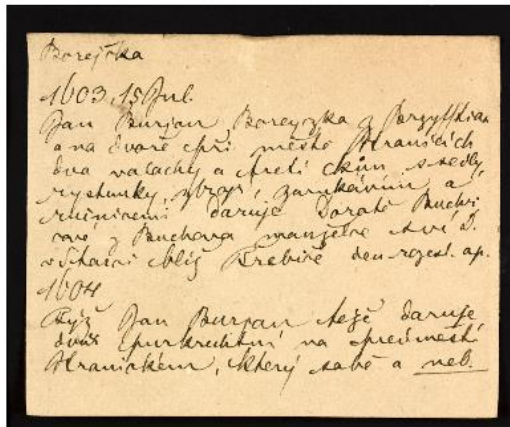 Borejška
1603, 15 Jul.
Jan Burjan Boreyczka z
a na dvoře při městě Hranicích
dva valachy a třetí s sedly,
rystunky, zbrojí, zarukávím a
ručnicemi daruje Dorotě Buchi
z Buchova manželce své D.
v blíž Třebíče den ap.
1604
Býž Jan Burjan též daruje
dvůr purkrechtní na předměstí
Hranickém, který sobě a neb.